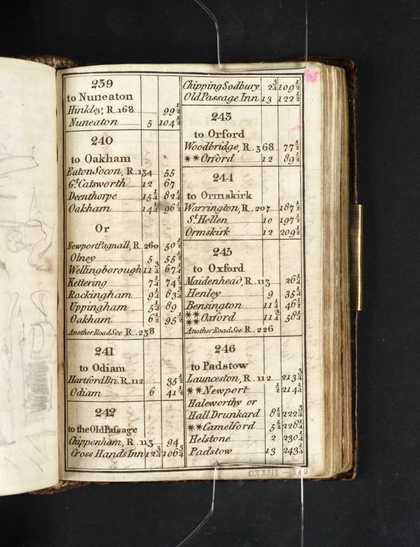 239
to Nuneaton
Hinkley, R. 168 99½
Nuneaton 5 104½
240
to Oakham
Eaton Socon, R. 134 55
Gt. Catworth 12 67
Deenthorpe 15¼ 82¼
Oakham 14¼ 96½
Or
Newport Pagnall, R. 260 50¼
Olney 5 55¼
Wellingborough 11¾ 67
Kettering 7¼ 74¼
Rockingham 9¼ 83½
Uppingham 5¼ 89
Oakham 6¼ 95¼
Another Road See R. 238
241
to Odiam
Hartford Bri. R. 112 35¼
Odiam 6 41¼
242
to the Old Passage
Chippenham, R. 113 94
Cross Hands Inn 12¼ 106¼
Chipping Sodbury 2¾ 109½
Old Passage Inn 13 122½
243
to Orford
Woodbridge, R. 368 77½
** Orford 12 89½
244
to Ormskirk
Warrington, R. 207 187½
St. Hellen 10 197½
Ormskirk 12 209½
245
to Oxford
Maidenhead, R. 113 26¼
Henley 9 35¼
Bensington 11¼ 46½
** Oxford 11¾ 58¼
Another Road See R. 226
246
to Padstow
Launceston, R. 112 213¾
** Newport ½ 214¼
Haleworthy or
Hall Drunkard 8½ 222¾
** Camelford 5½ 228¼
Helstone 2 230¼
Padstow 13 243¼